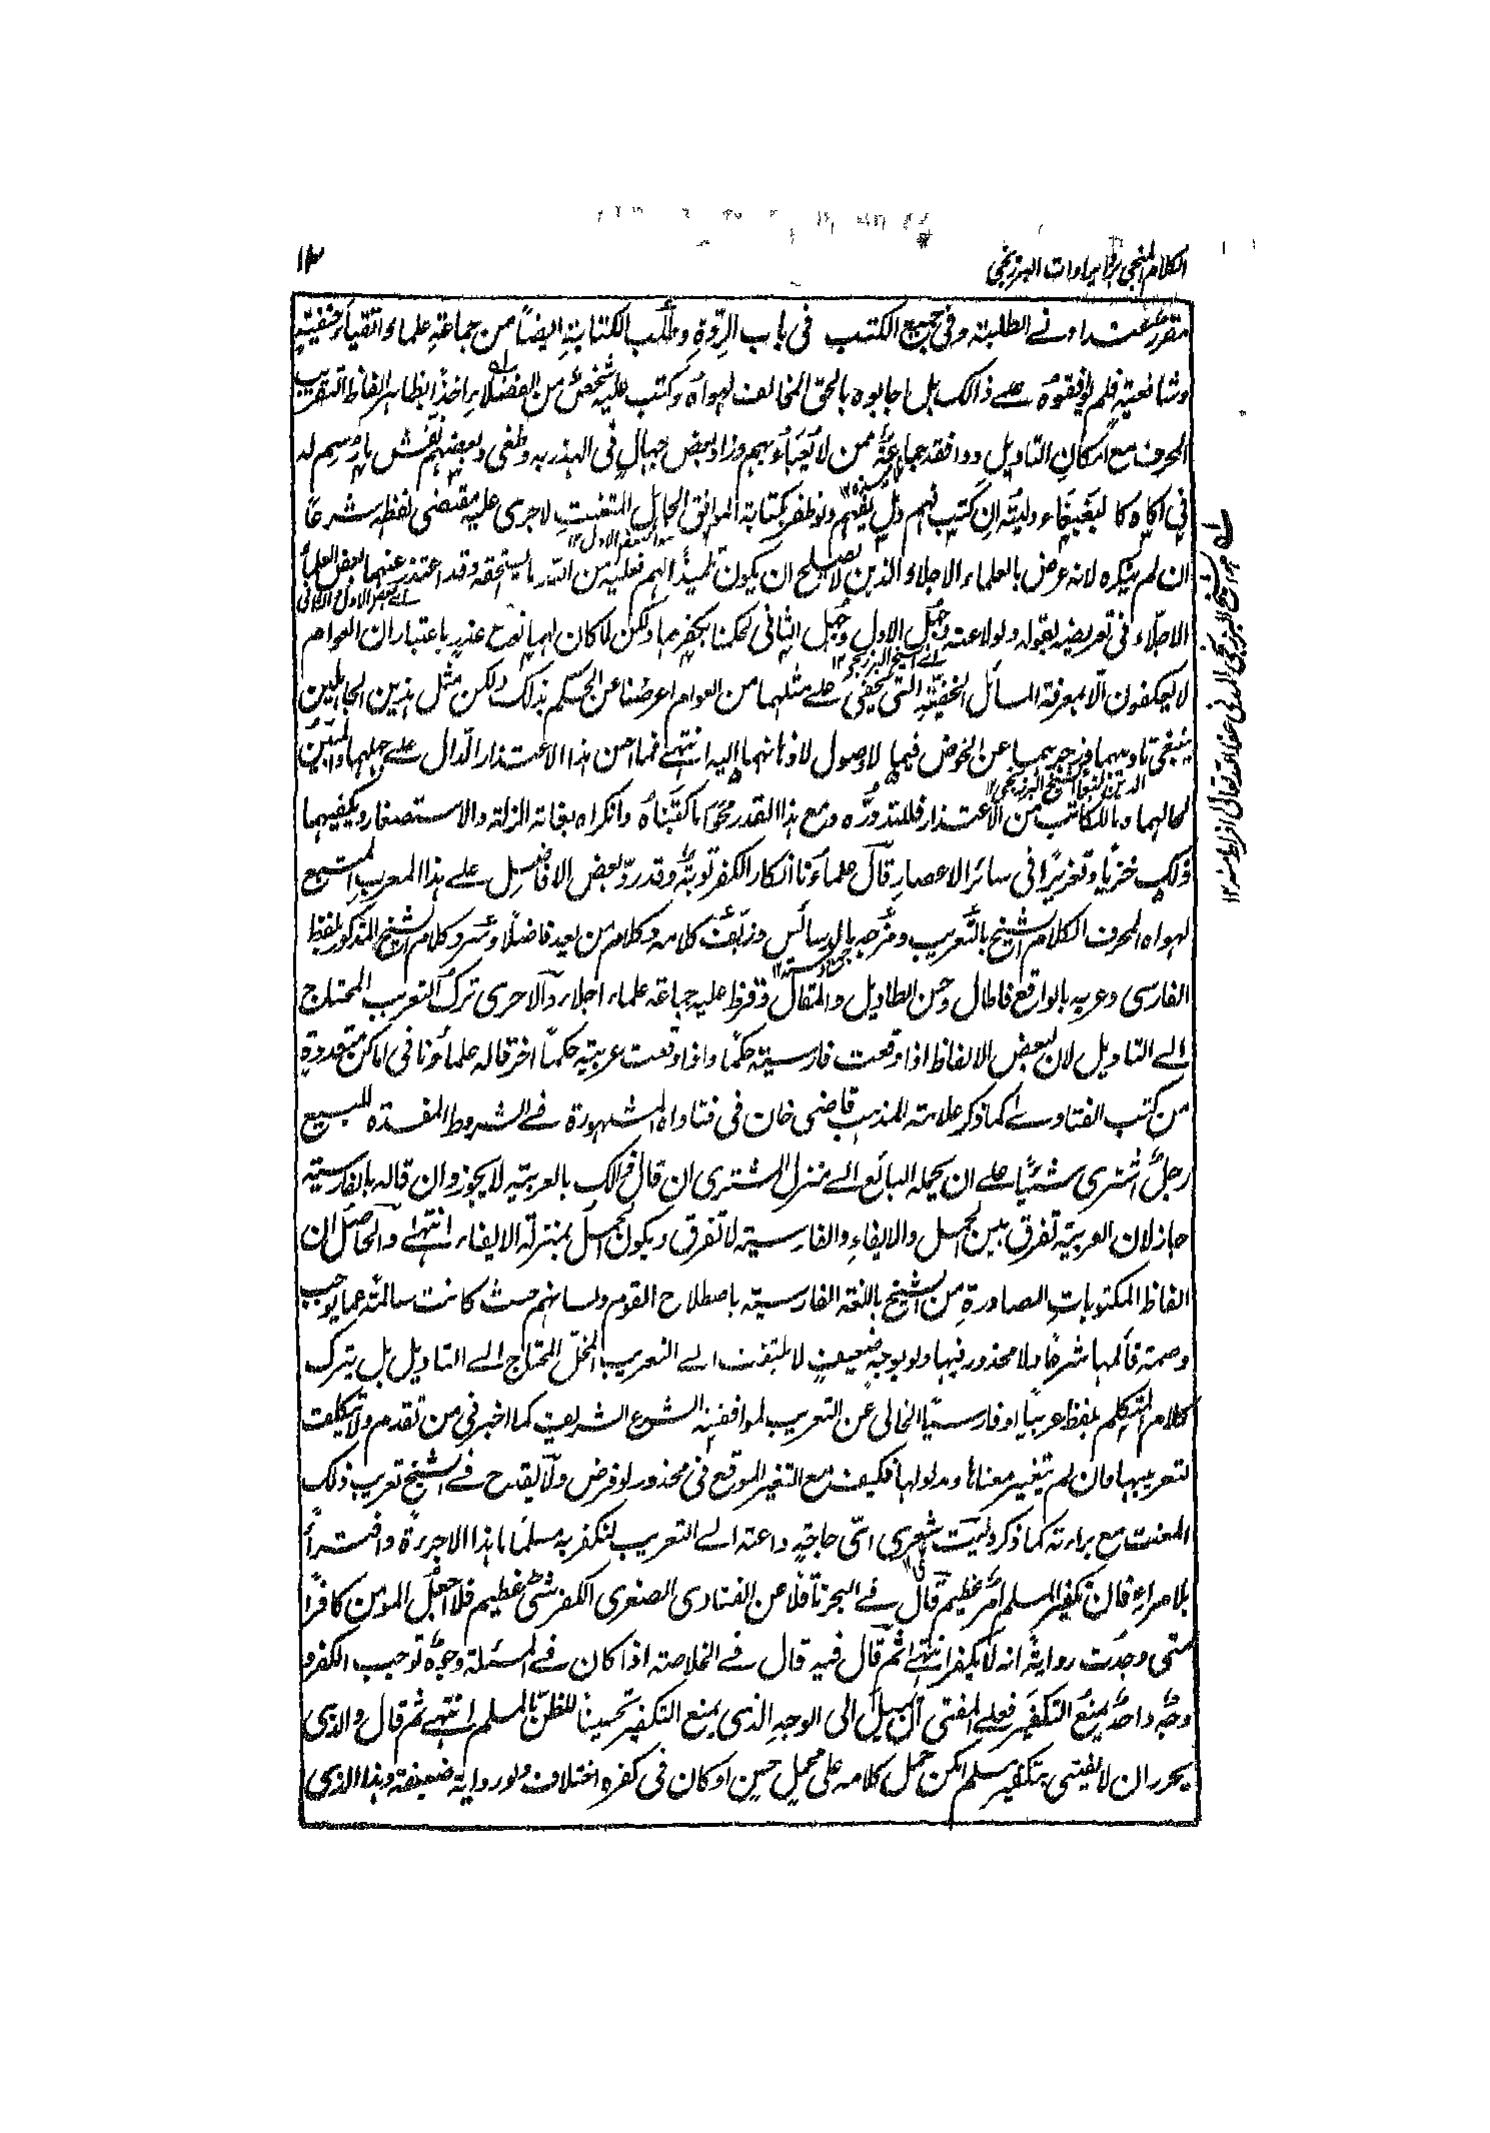 الكلام المنجی برد ایرادات البرزنجی
۱۳
مقرر عند ادنے الطلبة وفی جمیع الکتب فی باب الرّدّةِ وطلب الکتابةِ ایضاً من جماعةِ علماء اتقیاء حنفیةٍ
وشافعیةٍ فلم یوافقوه علے ذالک بل اجابوه بالحق المخالف لهواه وکتب علیه شخص من الفضلاء اخذاً بظاهر الفاظ التعریب
المحرف مع امکان التاویل ووافقه جماعةٌ ممن لا یعبأ بهم وزاد بعض جهال فی الهذر به وطغی وبعضهم نقش بارسم له
فی اکاره کالببغاء ولیته ان کتب فهم ولم یفهم ولو ظفر بکتابة الموافق الجاهل المتعنت لاجری علیه مقتضی لفظه شرعاً
ان لم ینکره لانه عرض بالعلماء الاجلاء الذین لا یصلح ان یکون تلمیذاً لهم فعلیه من الله ما یستحقه وقد اعتذر عنهما بعض العلماء
الاجلّاء فی تعریضه بقوله ولولا عته وجهل الاول وجهل الثانی لحکمنا بکفرهما ولکن لما کان لهما نوع عذرٍ باعتبار ان العوام
لا یکلفون الّا بمعرفة المسائل الخفیّة التی تخفی علے مثلهما من العوام اعرضنا عن الحکم بذلک ولکن مثل هذین الجاهلین
ینبغی تادیبهما وزجرهما عن الخوض فیما لا وصول لاذهانهما الیه انتهے فما احسن هذا الاعتذار الدّال علے جهلهما والمبیّن
لحالهما وما للکاتب من الاعتذار فلله درّه ومع هذا القدر محوا ما کتبناه وانکراه بغایة الزلة والاستصغار ویکفیهما
ذلک خزیاً وتعزیراً فی سائر الاعصار قال علماؤنا انکار الکفر توبة وقد ردّ بعض الافاضل علے هذا المعرب المتبع
لهواه المحرف الکلام الشیخ بالتعریب ومزجه بالرسائس وزیّف کلامه وکلام من یعد فاضلاً وسرد کلام الشیخ المذکور بلفظ
الفارسی وعربه بالواقع فاطال وحسن الطاویل والمقال وقرظ علیه جماعة علماء اجلاء والاحری ترک التعریب المحتاج
الے التاویل لان لبعض الالفاظ اذا وقعت فارسیة حکماً واذا وقعت عربیة حکماً اخر قاله علماؤنا فی اماکن متعددةٍ
من کتب الفتاوے کما ذکر علامة المذهب قاضی خان فی فتاواه المشهورة فے الشروط المفسدة للبیع
رجلٌ اشتری شیئاً علے ان یحمله البائع الے منزل المشتری ان قال ذالک بالعربیة لا یجوز وان قاله بالفارسیة
جاز لان العربیة تفرق بین الحمل والایفاءِ والفارسیة لا تفرق ویکون الحمل بمنزلة الایفاء انتهے والحاصل ان
الفاظ المکتوباتِ الصادرةِ من الشیخ باللغة الفارسیة باصطلاح القوم ولسانهم حیث کانت سالمةً عما یوجب
وصمة قائلها شرعاً بلا محذور فیها ولو بوجهٍ ضعیفٍ لا یلتفت الے التعریب المخلّ المحتاج الے التاویل بل یترک
کلام المتکلم بلفظه عربیاً او فارسیاً الخالی عن التعریب لموافقیه الشرع الشریف کما اخبر فی من تقدم ولا تتکلف
لتعریبها وان لم یتغیر معناها ومدلولها فکیف مع التغیر الموقع فی محذور لو فرض ولا یقدح فے الشیخ تعریب ذلک
المعنت مع براءته کما ذکر ولیت شعری ائی حاجةٍ داعته الے التعریب لنکفر به مسلماً ما هذا الا جرءة وافتراءً
بلا مراءٍ فان تکفیر المسلم امر عظیم قال فے البحر ناقلاً عن الفتاوی الصغری الکفر شئ عظیم فلا اجعل المؤمن کافراً
متی وجدت روایة انه لا یکفر انتهے ثم قال فیه قال فے الخلاصة اذا کان فے المسئلة وجوه توجب الکفر و
وجه واحد یمنع التکفیر فعلے المفتی ان یمیل الی الوجه الذی یمنع التکفیر تحسیناً للظن بالمسلم انتهے ثم قال والذی
تحرر ان لا یفتی بتکفیر مسلم امکن حمل کلامه علی محمل حسن او کان فی کفره اختلاف ولو روایة ضعیفة وهذا الذی